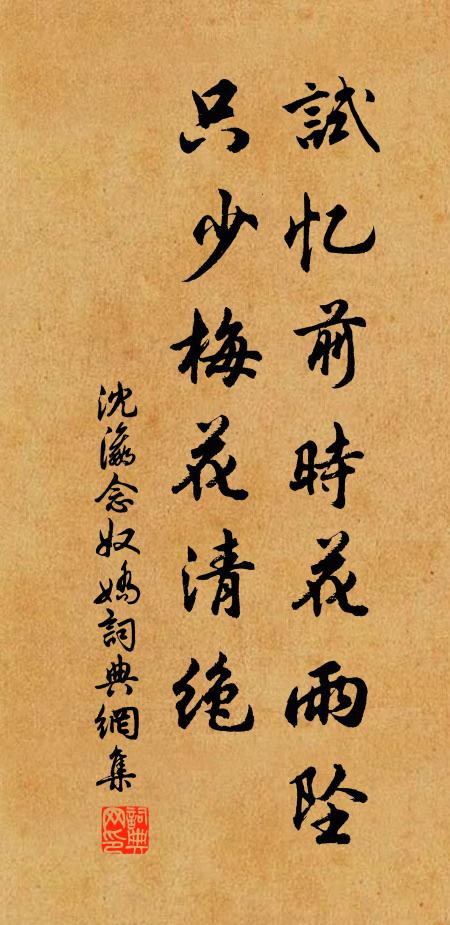 試忆前時花雨坠
只少梅花清绝
沈瀛念奴嬌詞典網集
詞典网印